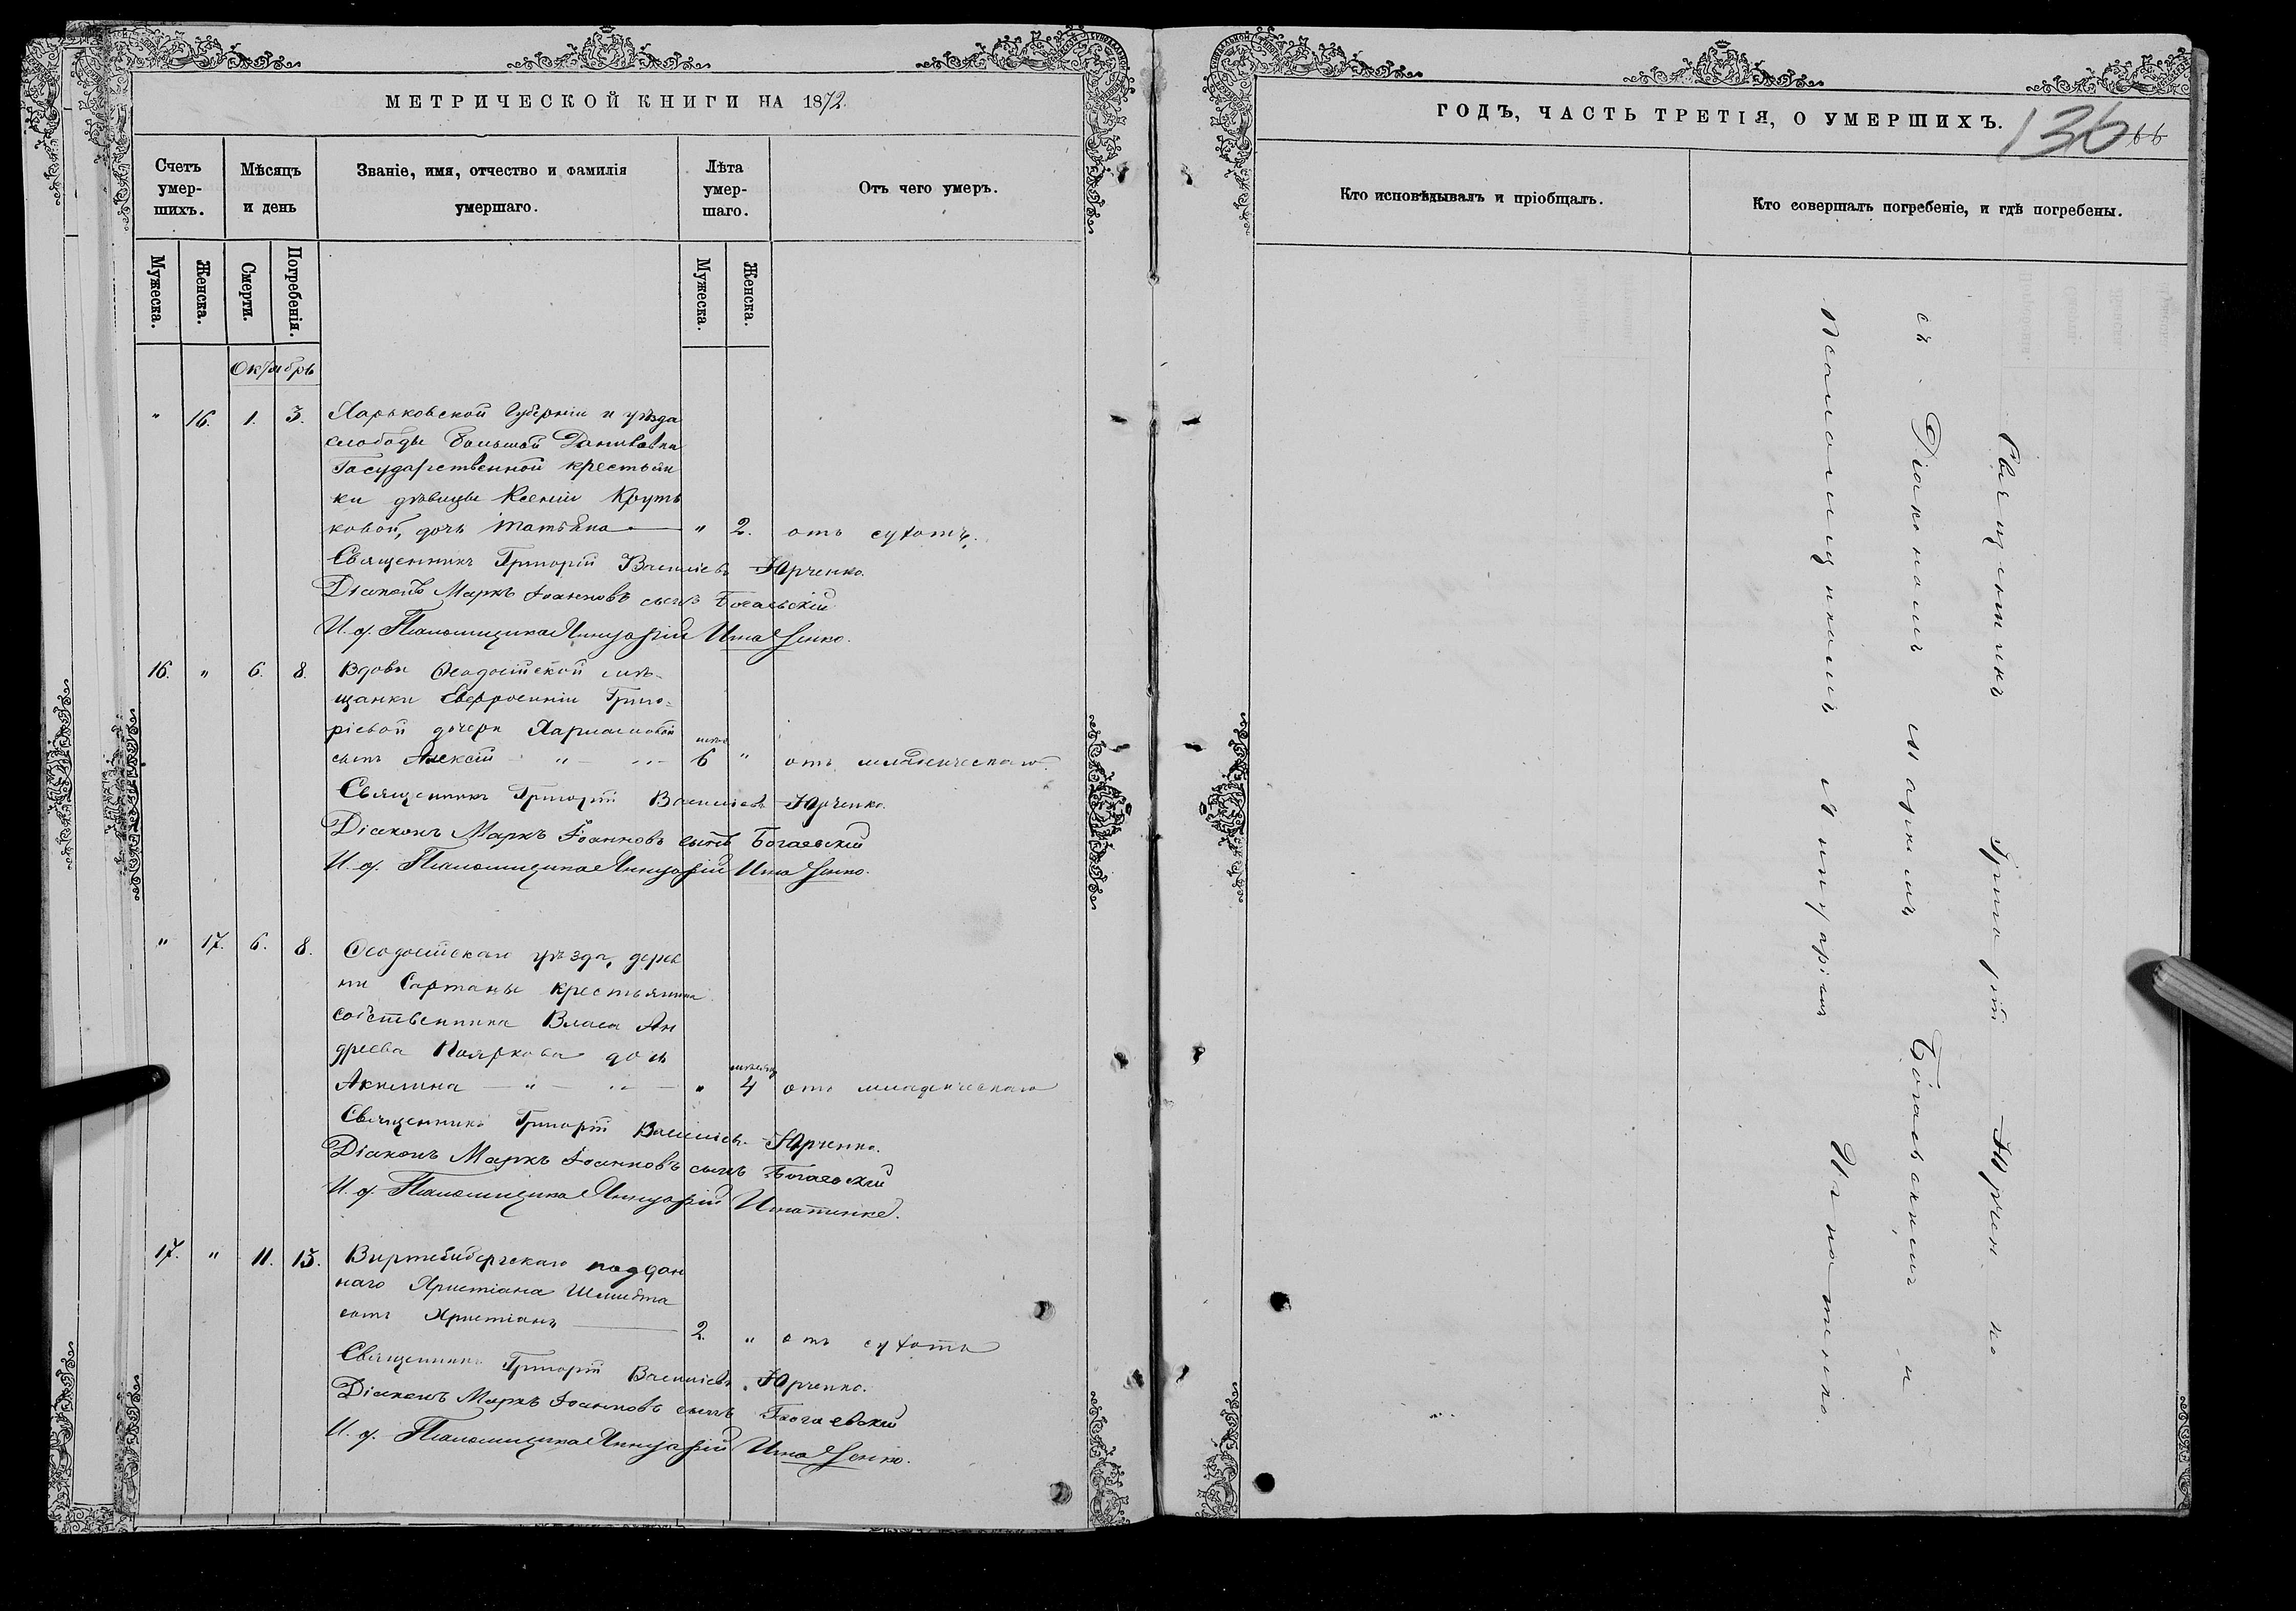 МЕТРИЧЕСКОЙ КНИГИ НА 1872.
Счетъ умер-шихъ.
Мѣсяцъ и день
Званіе, имя, отчество и фамилія умершаго.
Лѣта умер-шаго.
Отъ чего умеръ.
Мужеска.
Женска.
Смерти.
Погребенія.
Мужеска.
Женска.
Октябрь
" 16. 1. 3. Харьковской Губерніи и уѣзда
слободы Большой Даниловки
Государственной крестьян
ки дѣвицы Ксеніи Крутъ
ковой, дочь Татьяна — " 2. отъ сухотъ.
Священникъ Григорій Василіевъ Юрченко.
Діаконъ Маркъ Іоанновъ сынъ Богаевскій
И. д. Псаломщика Аннуарій Игнатенко.
16. " 6. 8. Вдовы Ѳеодосійской мѣ-
щанки Евфросиніи Григо-
ріевой дочери
сынъ Алексій - " - " - 6 " отъ младенческаго.
Священникъ Григорій Василіевъ Юрченко.
Діаконъ Маркъ Іоанновъ сынъ Богаевскій
И. д. Псаломщика Аннуарій Игнатенко.
" 17. 6. 8. Ѳеодосійскаго уѣзда, дерев
ни Сартаны крестьянина
собственника Власа Ан
дреева Пояркова дочь
Акилина — " — " — " 4 отъ младенческаго
Священникъ Григорій Василіевъ Юрченко.
Діаконъ Маркъ Іоанновъ сынъ Богаевскій
И. д. Псаломщика Аннуарій Игнатенко.
17. " 11. 13. Виртембергскаго поддан
наго Христіана Шмидта
сынъ Христіанъ — 2. " отъ сухотъ
Священникъ Григорій Василіевъ Юрченко.
Діаконъ Маркъ Іоанновъ сынъ Богаевскій
И. д. Псаломщика Аннуарій Игнатенко.
ГОДЪ, ЧАСТЬ ТРЕТІЯ, О УМЕРШИХЪ.
136
66
Кто исповѣдывалъ и пріобщалъ.
Кто совершалъ погребеніе, и гдѣ погребены.
Священникъ Григорій Юрченко
съ Діакономъ Маркомъ Богаевскимъ и
Псаломщикомъ Игнатенко.